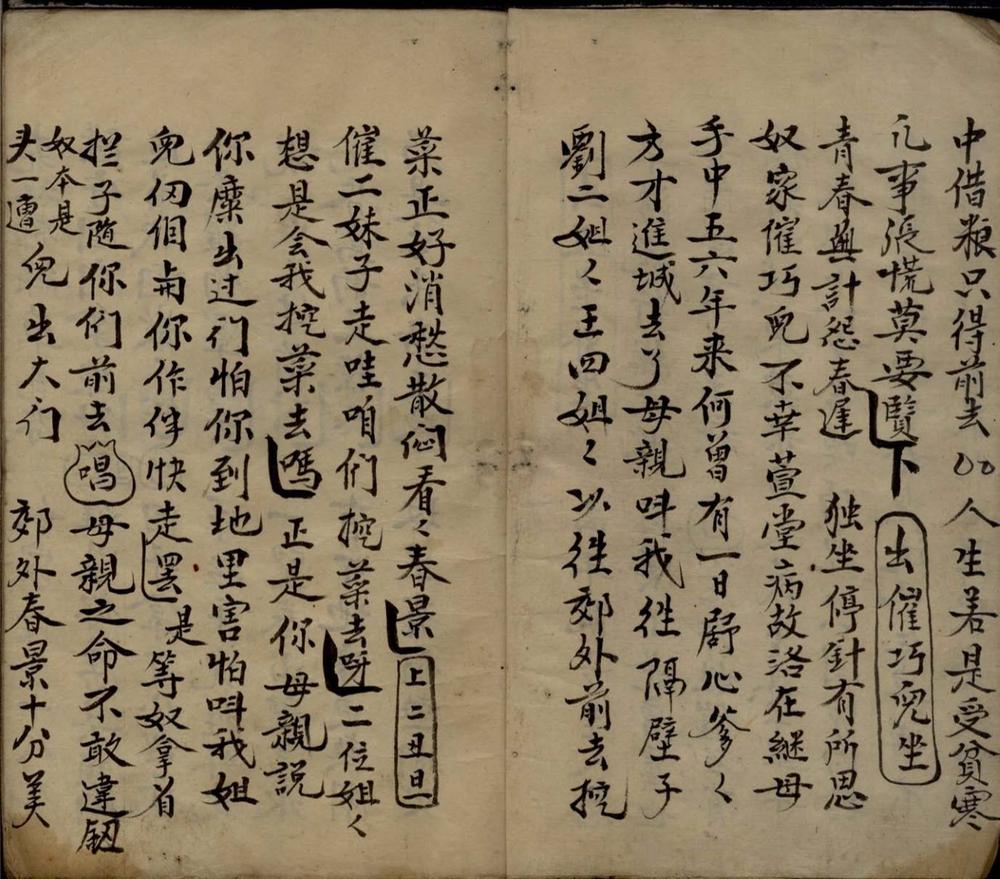 中借粮只得前去〻人生若是受貧寒
凡事張慌莫要覽下 出催巧兒坐
青春無計怨春遅 独坐停針有所思
奴家催巧兒不幸萱堂病故洛在継母
手中五六年来何曾有一日舒心爹〻
方才進城去了母親呌我往隔壁子
劉二姐〻王四姐〻以往郊外前去挖
菜正好消愁散闷看〻春景 上二丑旦
催二妹子走哇咱们挖菜去呀二位姐〻
想是会我挖菜去嗎正是你母親説
你糜出过门怕你到地里害怕呌我姐
兒仭個與你作伴快走罢是等奴拿肖
拦子隨你们前去唱母親之命不敢違
奴本是
头一遭兒出大门 郊外春景十分美